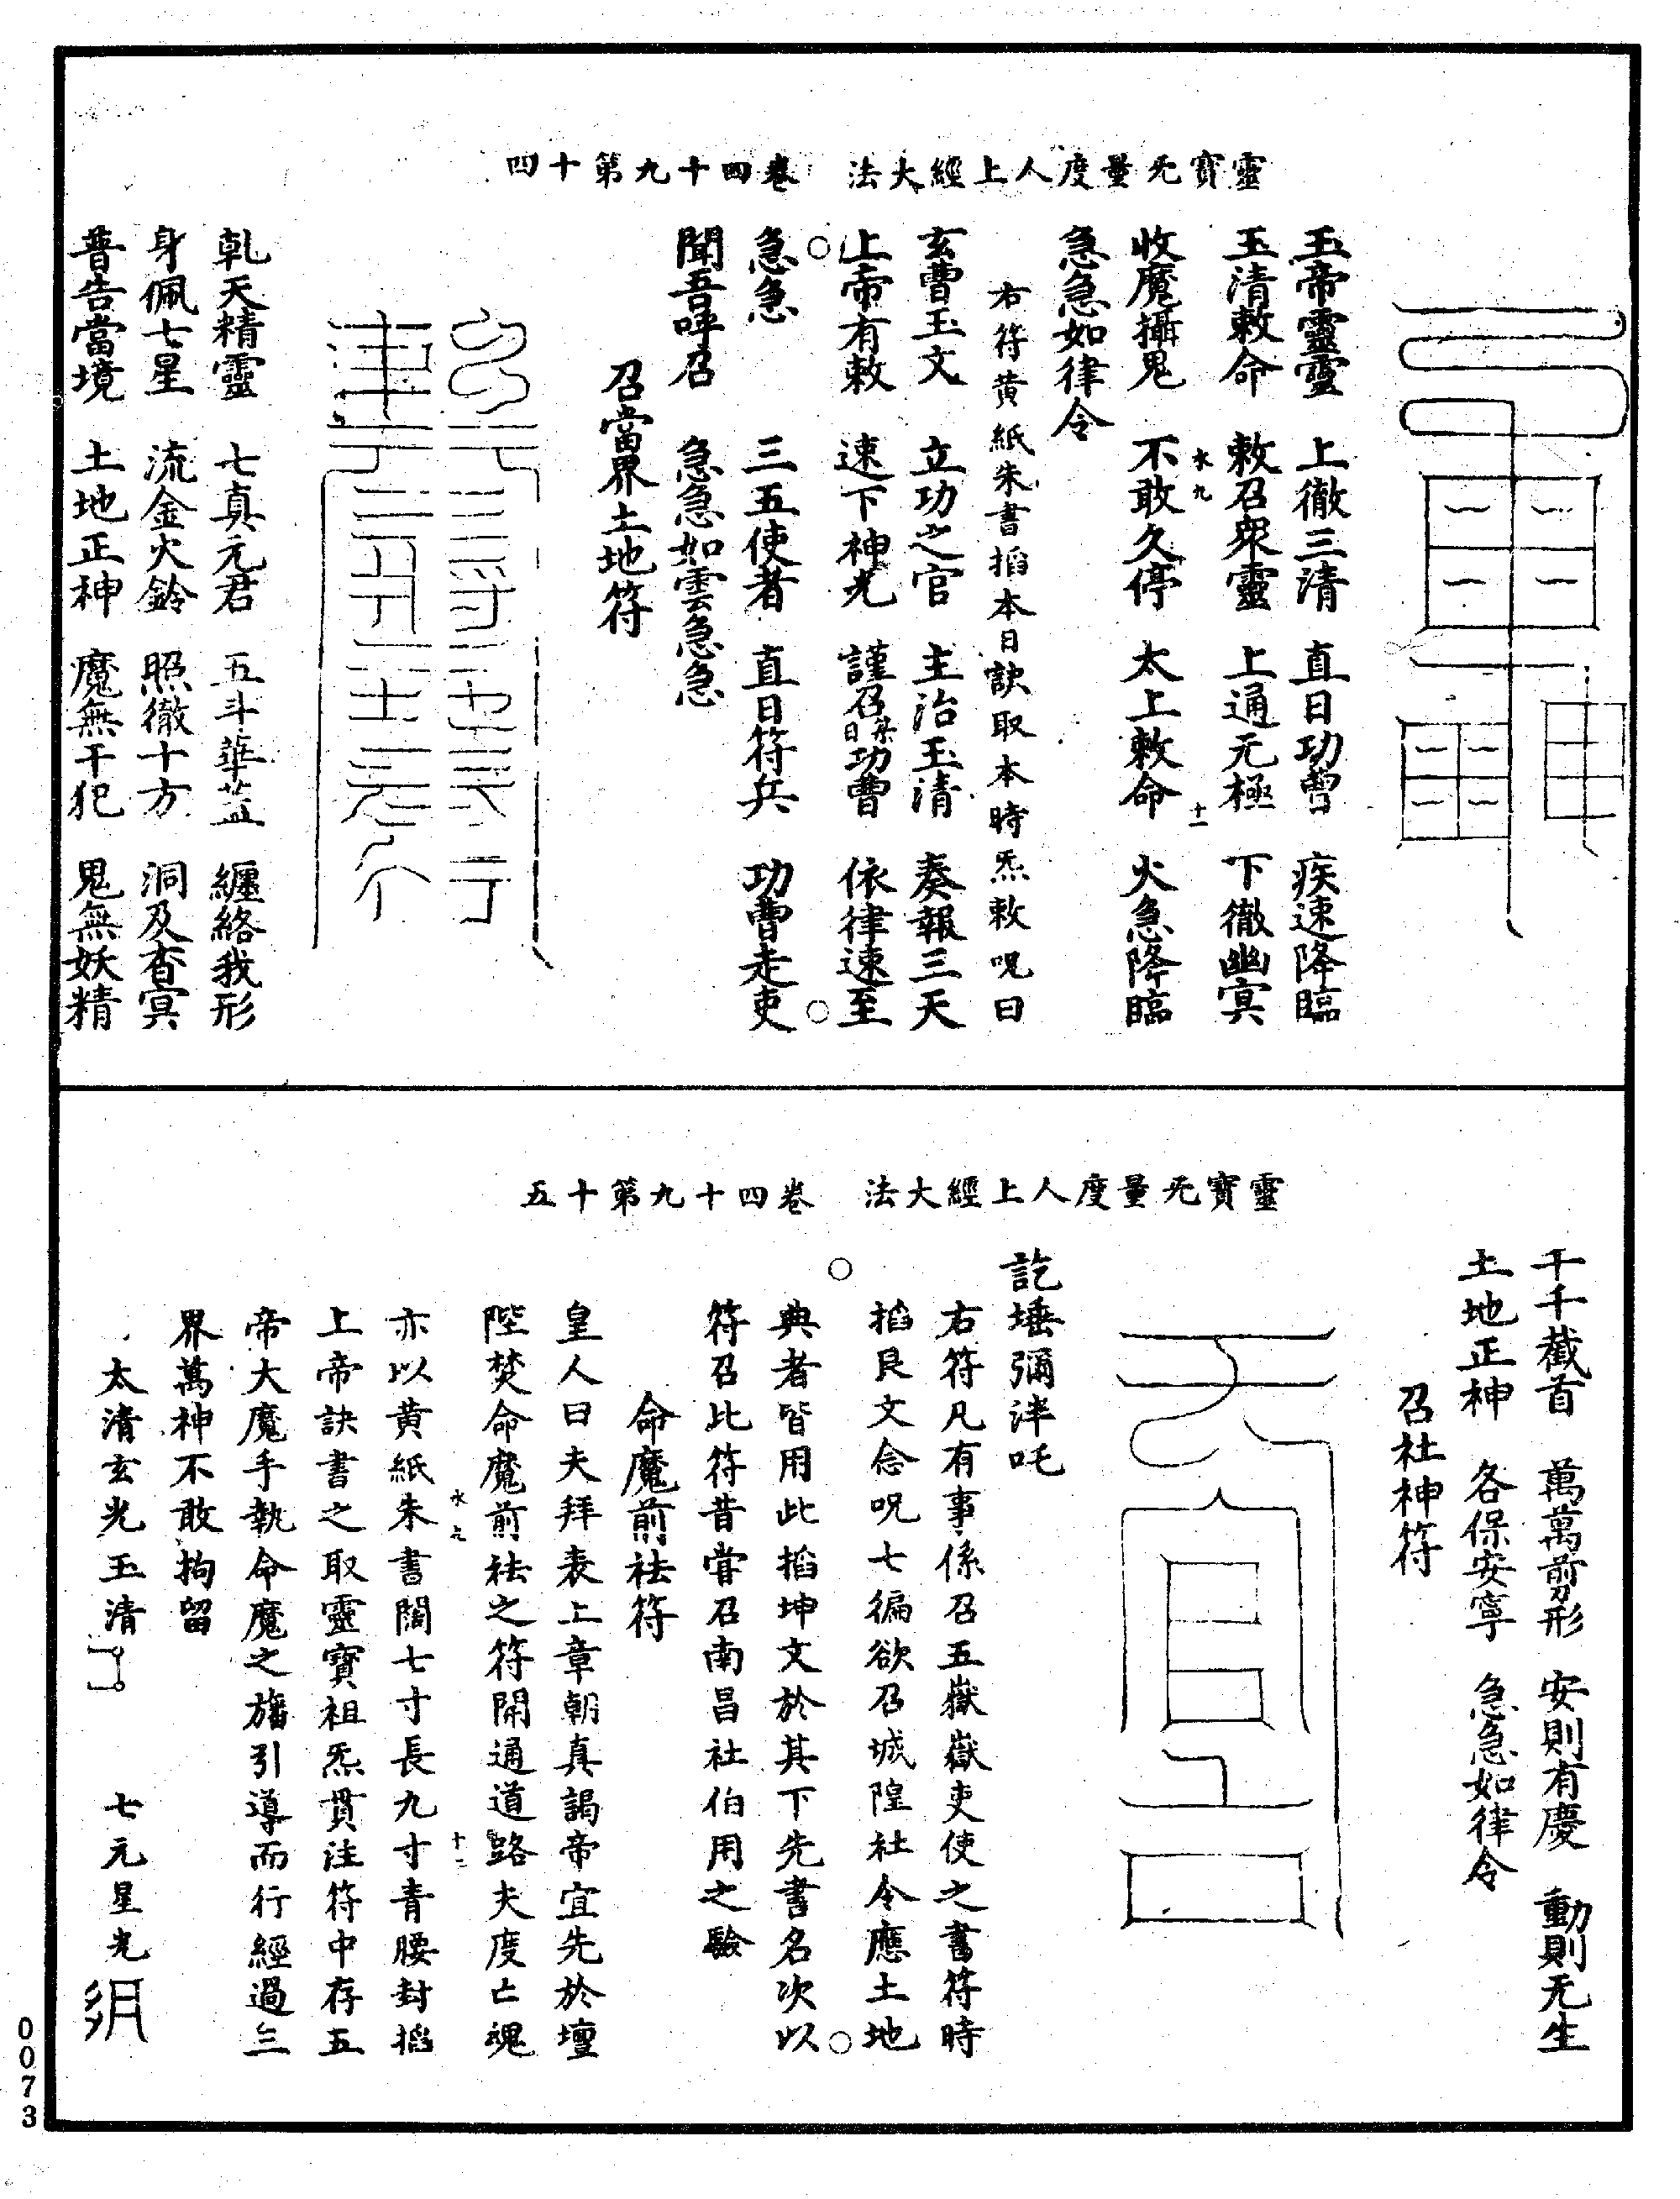 靈寶无量度人上經大法　卷四十九第十四
玉帝靈靈　上徹三清　直日功曹　疾速降臨
玉清敕命　敕召衆靈　上通元極　下徹幽冥
水九　十一
收魔攝鬼　不敢久停　太上敕命　火急降臨
急急如律令
右符黄紙朱書掐本日訣取本時炁敕呪曰
玄曹玉文　立功之官　主治玉清　奏報三天
上帝有敕　速下神光　謹召某日功曹　依律速至
急急　三五使者　直日符兵　功曹走吏
聞吾呼召　急急如雲急急
召當界土地符
乹天精靈　七真元君　五斗華蓋　纏絡我形
身佩七星　流金火鈴　照徹十方　洞及杳冥
普告當境　土地正神　魔無干犯　鬼無妖精
靈寶无量度人上經大法　卷四十九第十五
千千截首　萬萬剪形　安則有慶　動則无生
土地正神　各保安寧　急急如律令
召社神符
訖埵彌泮吒
右符凡有事係召五嶽嶽吏使之書符時
掐艮文念呪七徧欲召城隍社令應土地
典者皆用此掐坤文於其下先書名次以
符召比符昔嘗召南昌社伯用之驗
命魔前祛符
皇人曰夫拜表上章朝真謁帝宜先於壇
陛焚命魔前祛之符開通道路夫度亡魂
水九　十二
亦以黄紙朱書闊七寸長九寸青腰封掐
上帝訣書之取靈寶祖炁貫注符中存五
帝大魔手執命魔之旛引導而行經過三
界萬神不敢拘留
太清玄光玉清　七元星光
0073